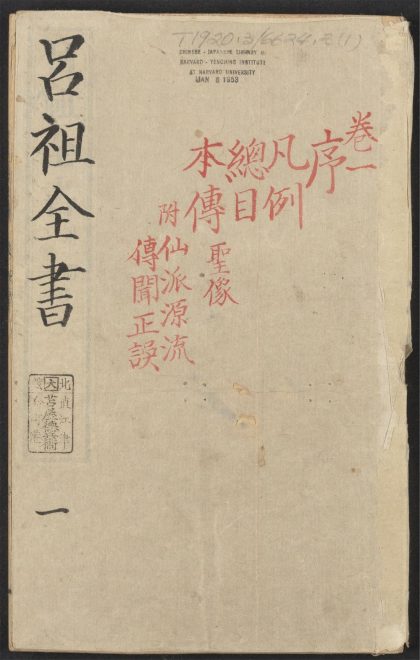 T1920.3/6624.2(1)
CHINESE - JAPANESE LIBRARY
HARVARD - YENCHING INSTITUTE
AT HARVARD UNIVERSITY
JAN 2 1953
卷一
序
凡例
總目
本傳 聖像
附仙派源流
傳聞正誤
呂祖全書
一